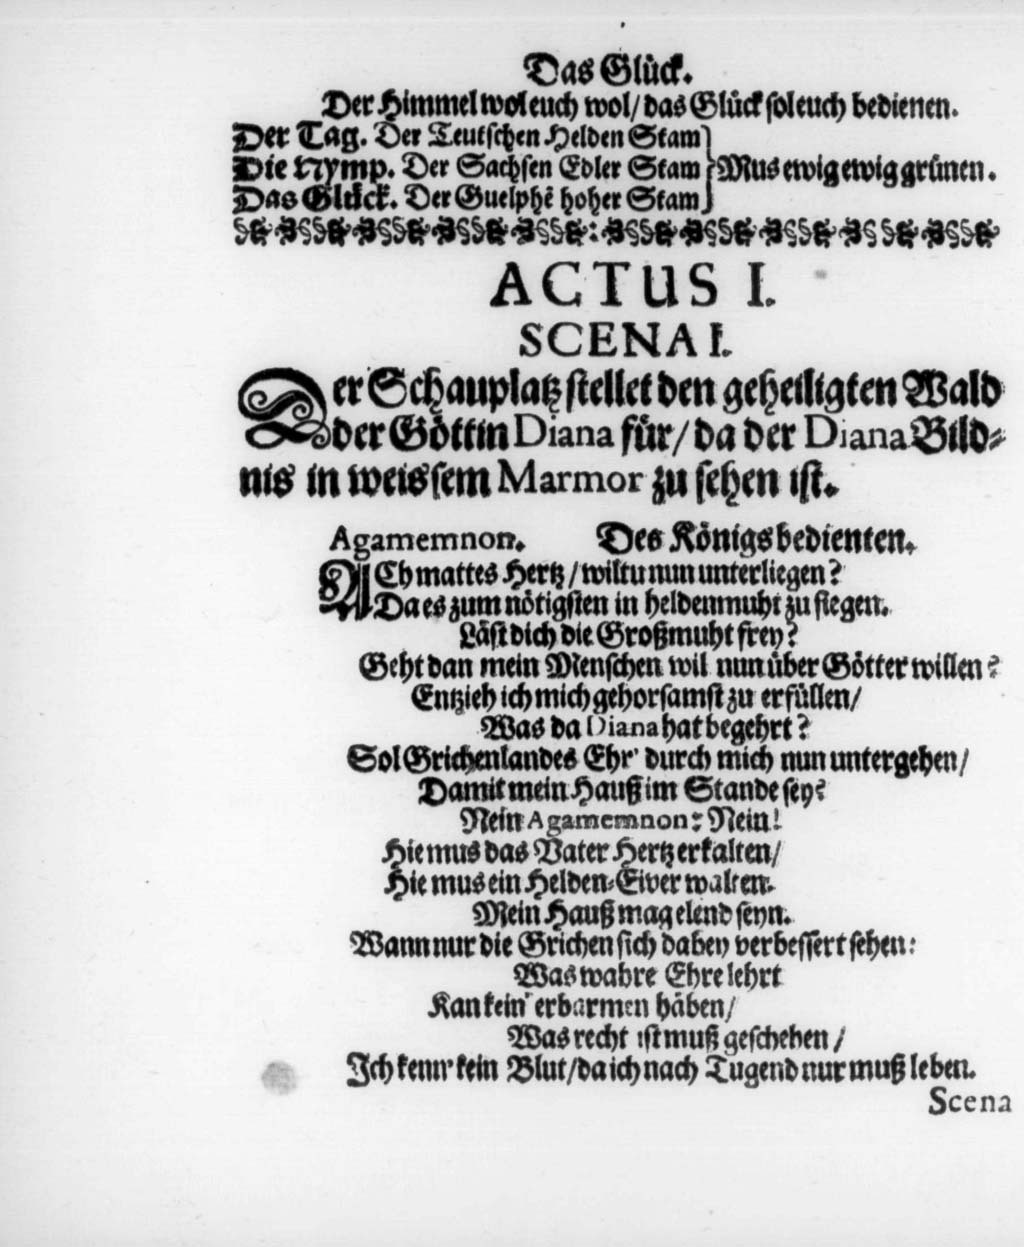 Das Glück.
Der Himmel wol euch wol/ das Glück sol euch bedienen.
Der Tag. Der Teutschen Helden Stam
Die Nymp. Der Sachsen Edler Stam } Mus ewig ewig grünen.
Das Glück. Der Guelphẽ hoher Stam
ACTUS I.
SCENA I.
Der Schauplatz stellet den geheiligten Wald
der Göttin Diana für/ da der Diana Bild-
nis in weissem Marmor zu sehen ist.
Agamemnon. Des Königs bedienten.
ACh mattes Hertz/ wiltu nun unterliegen?
Da es zum nötigsten in heldenmuht zu siegen.
Läst dich die Großmuht frey?
Geht dan mein Menschen wil nun über Götter willen?
Entzieh ich mich gehorsamst zu erfüllen/
Was da Diana hat begehrt?
Sol Grichenlandes Ehr' durch mich nun untergehen/
Damit mein Hauß im Stande sey?
Nein Agamemnon: Nein!
Hie mus das Vater Hertz erkalten/
Hie mus ein Helden-Eiver walten.
Mein Hauß mag elend seyn.
Wann nur die Grichen sich dabey verbessert sehen:
Was wahre Ehre lehrt
Kan kein' erbarmen häben/
Was recht ist muß geschehen/
Ich kenn' kein Blut/ da ich nach Tugend nur muß leben.
Scena